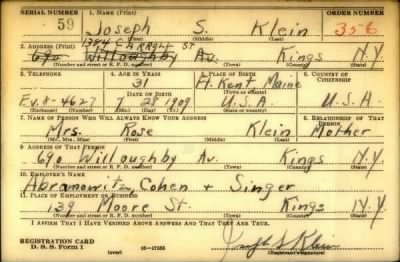 SERIAL NUMBER 1. NAME (Print) ORDER NUMBER
59 Joseph S. Klein 356
(First) (Middle) (Last)
1304 CARROLL ST
2. ADDRESS (Print)
690 Willoughby Av. Kings N.Y
(Number and street or R. F. D. number) (Town) (County) (State)
3. TELEPHONE 4. AGE IN YEARS 5. PLACE OF BIRTH 6. COUNTRY OF CITIZENSHIP
31 Ft. Kent Maine
DATE OF BIRTH
Ev.8-4627 28 1909 U.S.A U.S.A.
(Exchange) (Number) (Mo.) (Day) (Yr.) (State or country)
7. NAME OF PERSON WHO WILL ALWAYS KNOW YOUR ADDRESS 8. RELATIONSHIP OF THAT PERSON
Mrs. Rose Klein Mother
(Mr., Mrs., Miss) (First) (Middle) (Last)
9. ADDRESS OF THAT PERSON
690 Willoughby Av. Kings N.Y
(Number and street or R. F. D. number) (Town) (County) (State)
10. EMPLOYER'S NAME
Abramowitz, Cohen + Singer
11. PLACE OF EMPLOYMENT OR BUSINESS
139 Moore St. Kings N.Y.
(Number and street or R. F. D. number) (Town) (County) (State)
I AFFIRM THAT I HAVE VERIFIED ABOVE ANSWERS AND THAT THEY ARE TRUE.
REGISTRATION CARD
D. S. S. Form 1 (over) 16-17105 Joseph S Klein
(Registrant's signature)